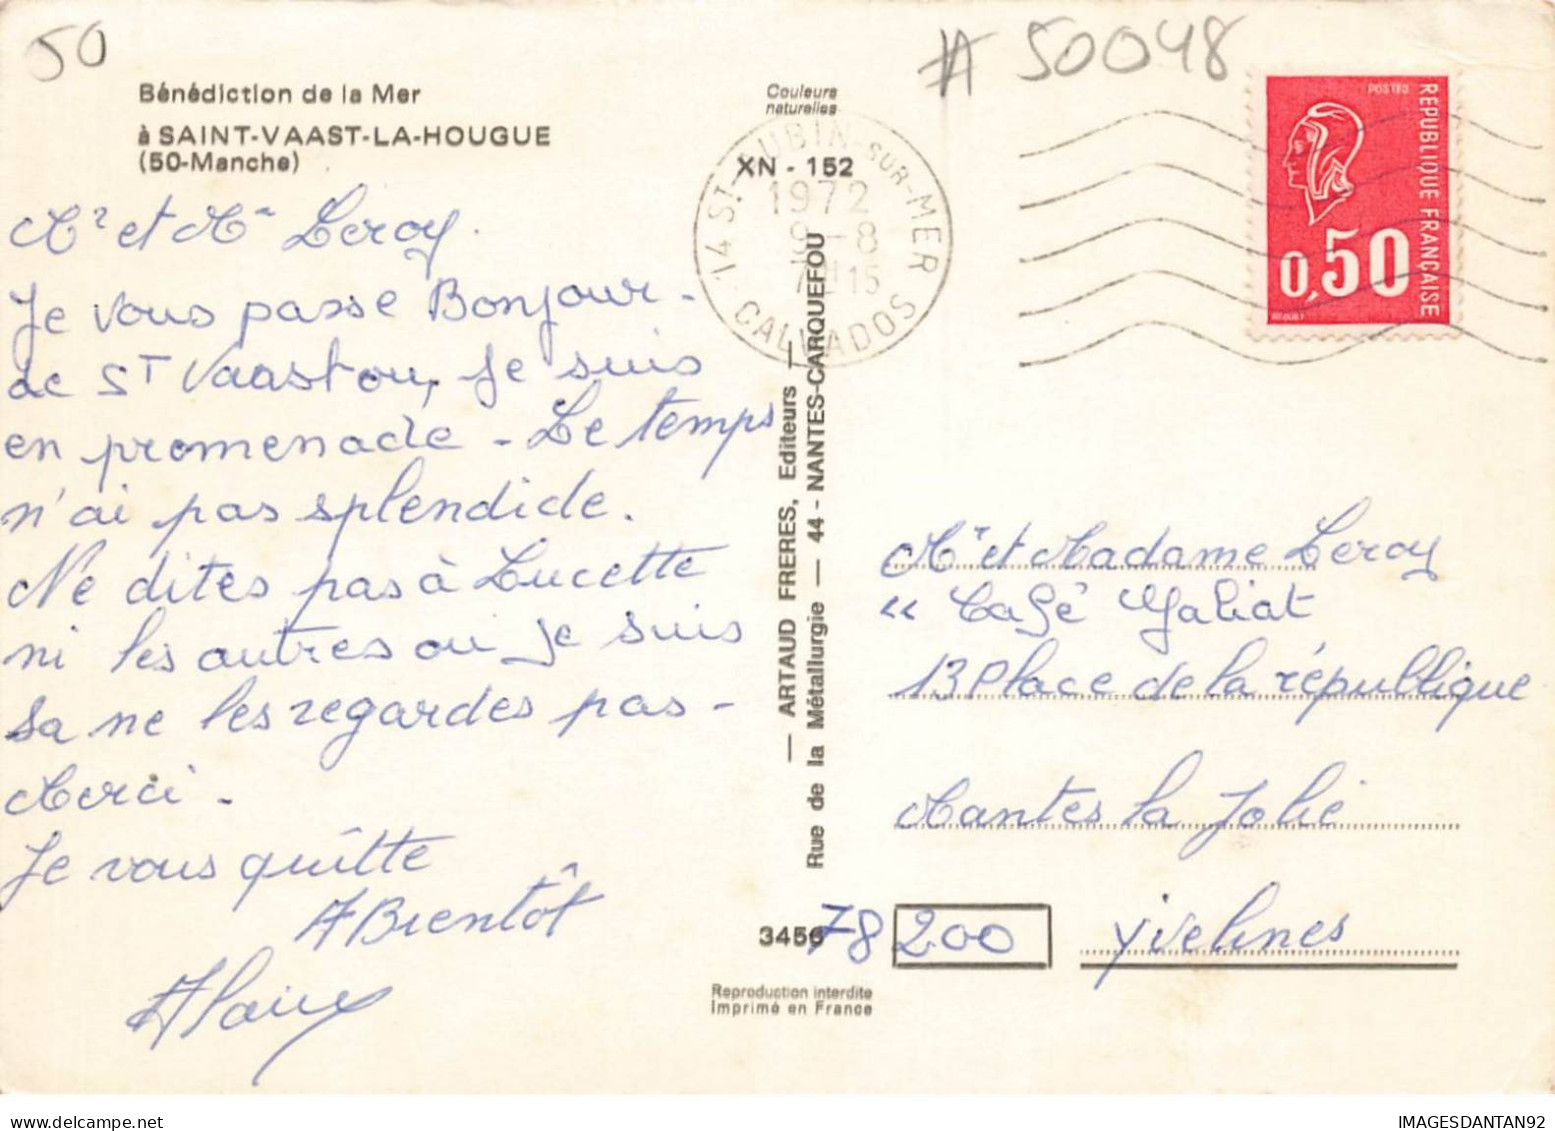 50
# 50048
Bénédiction de la Mer
à SAINT-VAAST-LA-HOUGUE
(50-Manche)
Couleurs
naturelles
XN - 152
14 ST-AUBIN-SUR-MER
1972
9-8
7H15
CALVADOS
POSTES
REPUBLIQUE FRANÇAISE
0,50
Mr et Me Leroy.
Je vous passe Bonjour -
de ST Vaast ou, je suis
en promenade - Le temps
n'ai pas splendide.
Ne dites pas à Lucette
ni les autres ou je suis
sa ne les regardes pas -
Merci -
Je vous quitte
A Bientôt
Alain
— ARTAUD FRERES, Editeurs —
Rue de la Métallurgie — 44 - NANTES-CARQUEFOU
Mr et Madame Leroy
" Café
13 Place de la république
Mantes la Jolie
3456
78 200 yvelines
Reproduction interdite
Imprimé en France
IMAGESDANTAN92